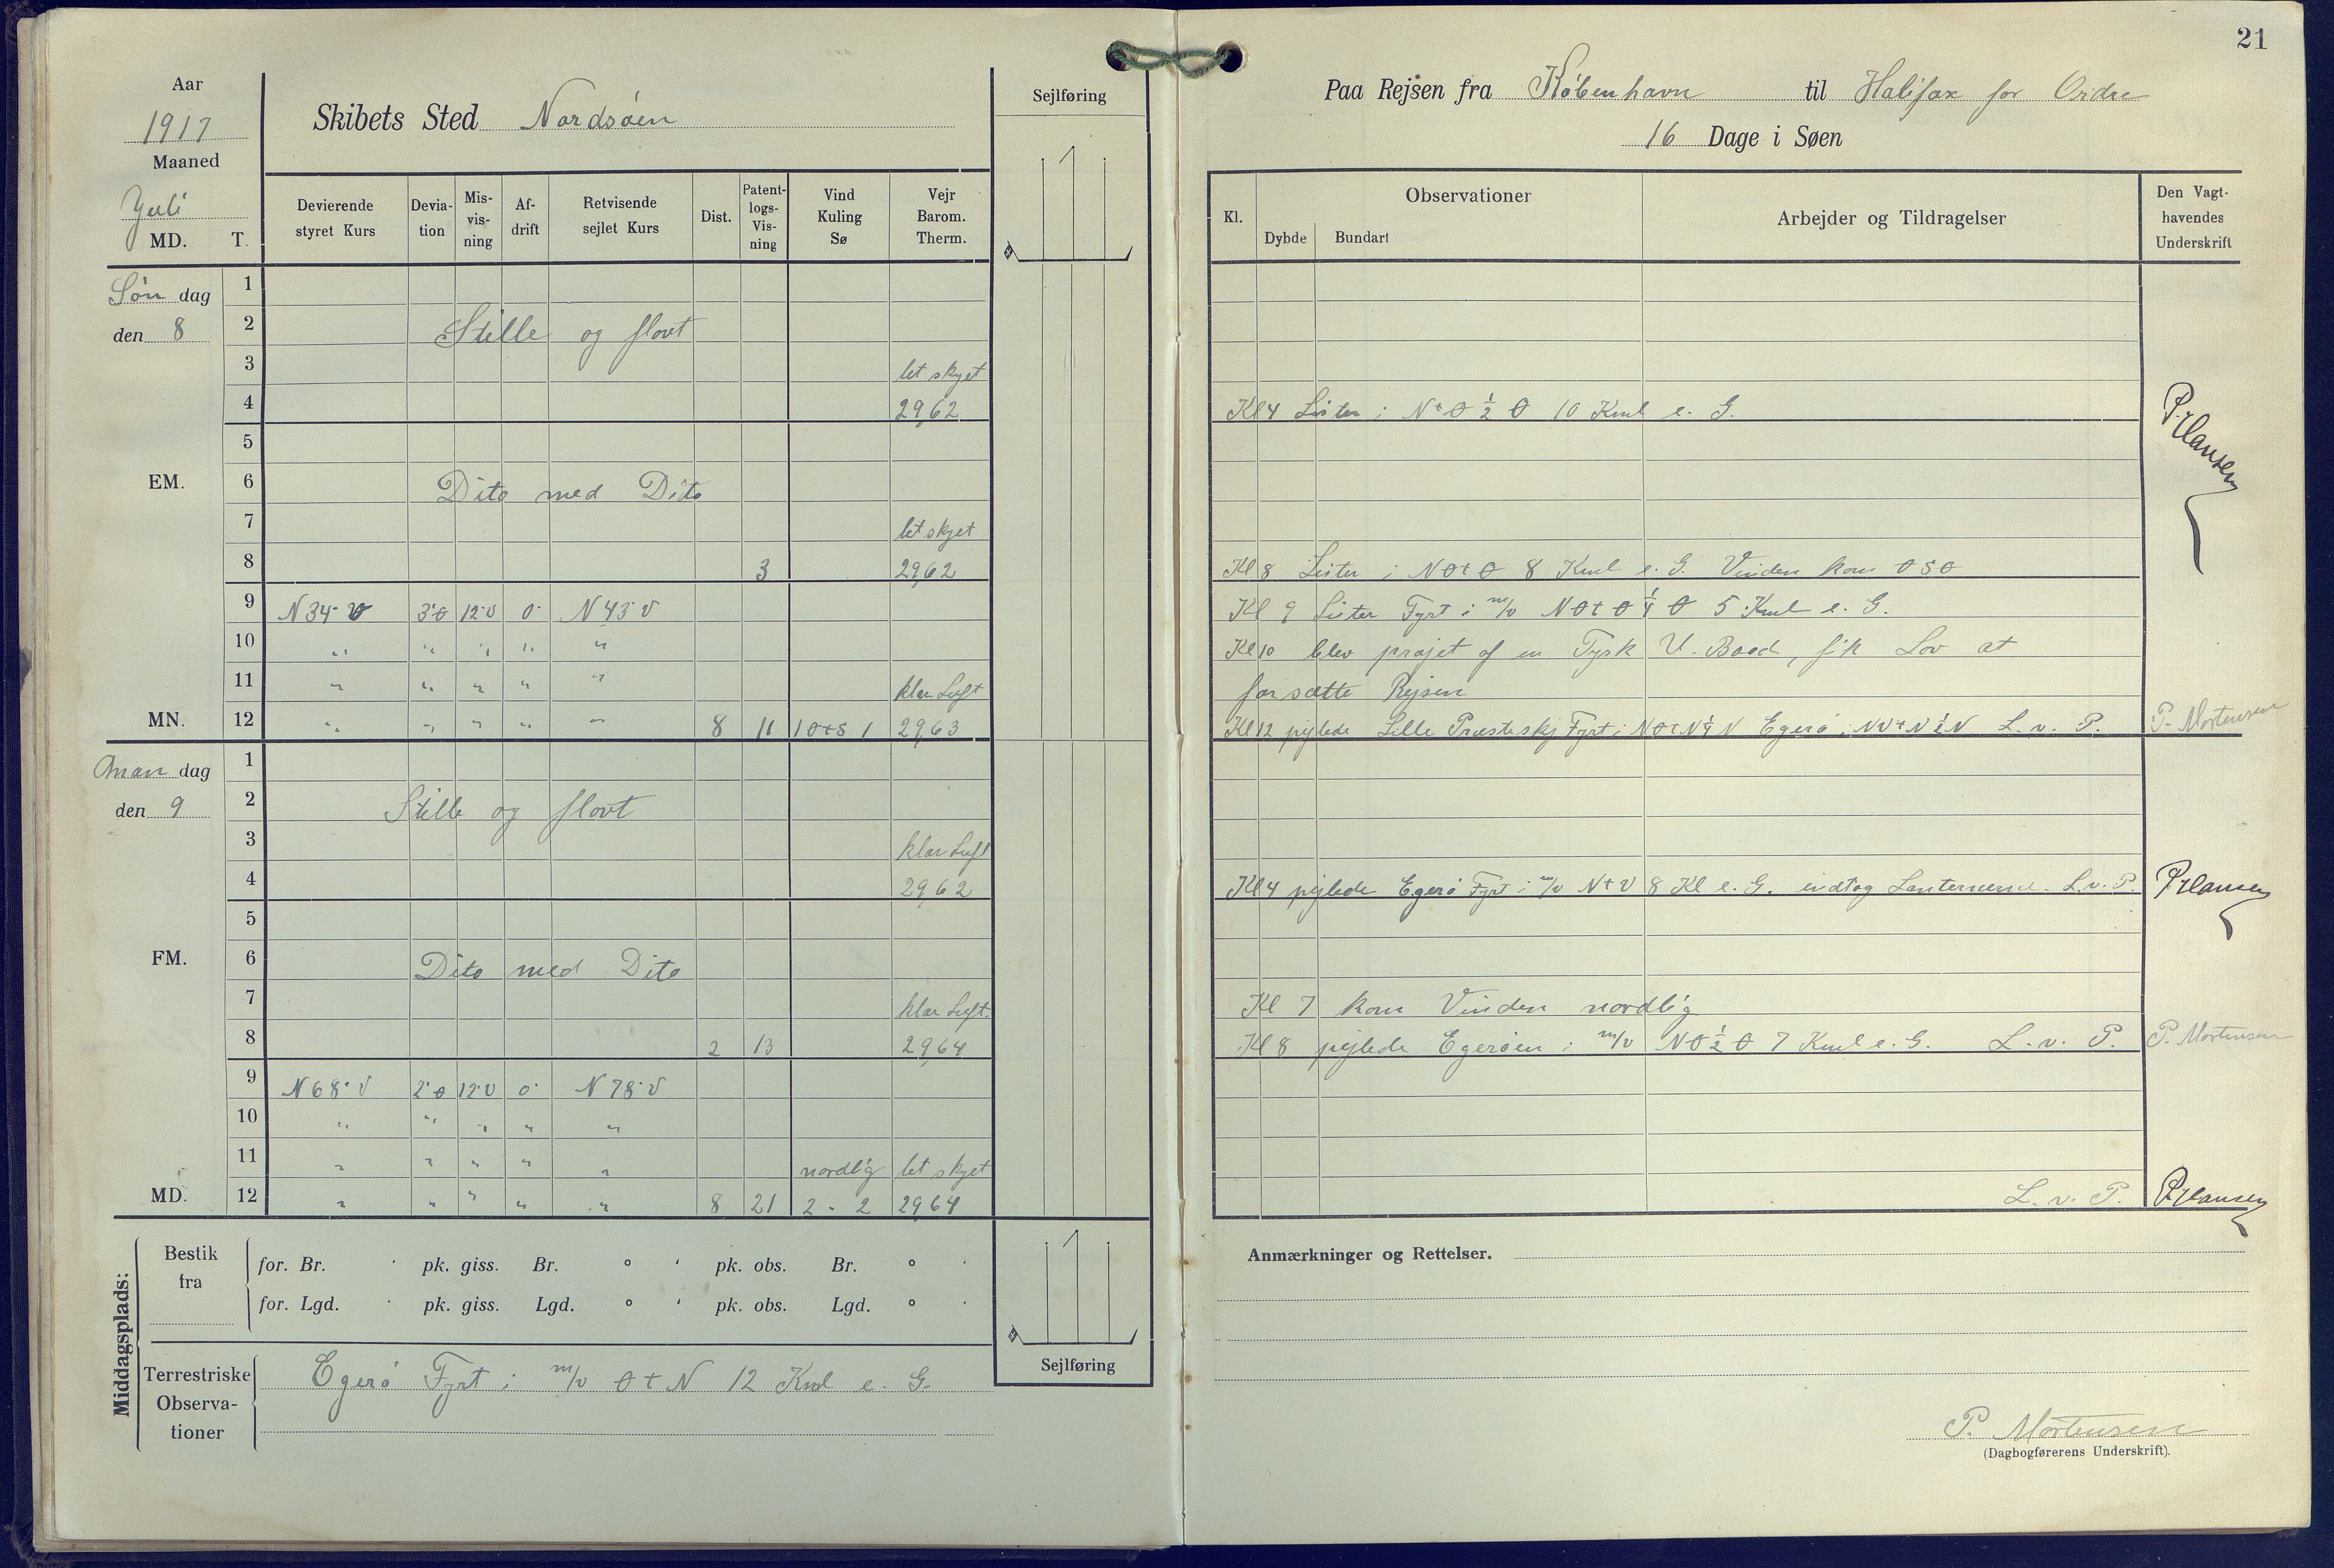 21
Aar
1917
Maaned
Juli
MD. T.
Skibets Sted Nordsøen
Sejlføring
Devierende styret Kurs
Deviation
Misvisning
Afdrift
Retvisende sejlet Kurs
Dist.
Patentlogs-Visning
Vind Kuling Sø
Vejr Barom. Therm.
Paa Rejsen fra København til Halifax for Ordre
16 Dage i Søen
Kl.
Observationer
Dybde Bundart
Arbejder og Tildragelser
Den Vagthavendes Underskrift
Søn dag
den 8
1
2 Stille og flovt
3 let skyet
4 29,62 Kl 4 Lister i N t O ½ O 10 Kml e. G. P Hansen
5
EM. 6 Dito med Dito
7 let skyet
8 3 29,62 Kl 8 Lister i NO t O 8 Kml e. G. Vinden kom OSO
9 N 34° V 3°O 12°V 0° N 43° V Kl 9 Lister Fyrt i m/v NO t O ¼ O 5 Kml e. G.
10 " " " " " Kl 10 blev prajet af en Tysk U. Baad, fik Lov at
11 " " " " " klar Luft forsætte Rejsen
MN. 12 " " " " " 8 11 1 OtS 1 29,63 Kl 12 pejlede Lille Præsteskj Fyrt i NO t N ¼ N Egerø i NV t N ½ N L. v. P. P. Mortensen
Man dag
den 9
1
2 Stille og flovt
3 klar Luft
4 29,62 Kl 4 pejlede Egerø Fyrt i m/v N t V 8 Kl e. G. indtog Lanternerne. L. v. P. P Hansen
5
FM. 6 Dito med Dito
7 klar Luft. Kl 7 kom Vinden nordlig
8 2 13 29,64 Kl 8 pejlede Egerøen i m/v NO ½ O 7 Kml e. G. L. v. P. P. Mortensen
9 N 68° V 2°O 12°V 0° N 78° V
10 " " " " "
11 " " " " " nordlig let skyet
MD. 12 " " " " " 8 21 2 - 2 29,64 L. v. P. P Hansen
Middagsplads:
Bestik fra
for. Br. ' pk. giss. Br. ° ' pk. obs. Br. ° '
for. Lgd. ' pk. giss. Lgd. ° ' pk. obs. Lgd. ° '
Sejlføring
Terrestriske Observationer
Egerø Fyrt i m/v O t N 12 Kml e. G.
Anmærkninger og Rettelser.
P. Mortensen
(Dagbogførerens Underskrift).